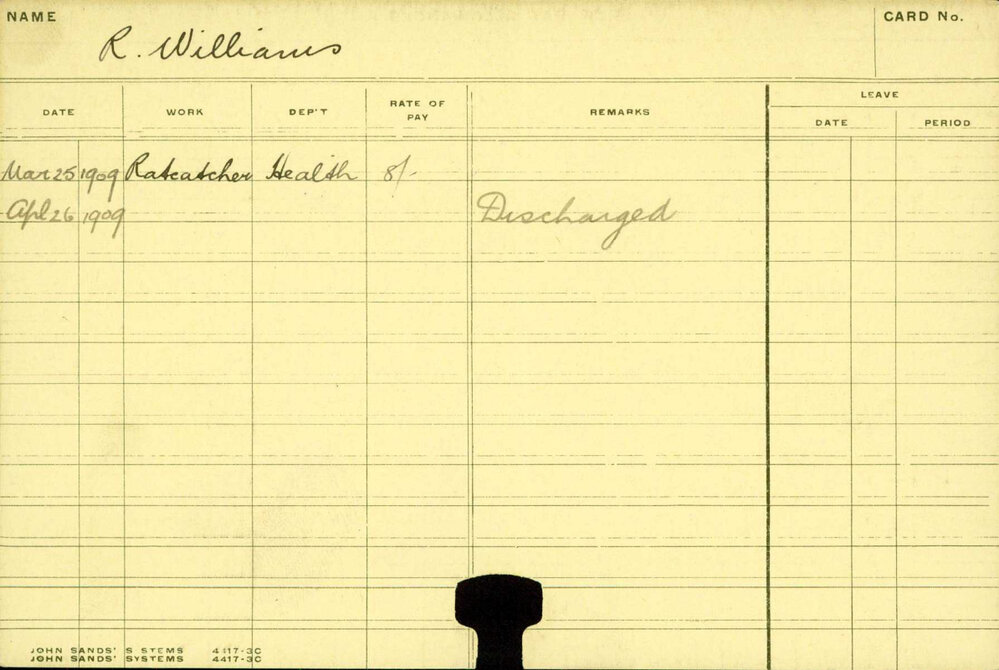 NAME
CARD No.
R. Williams
DATE WORK DEP'T RATE OF PAY REMARKS LEAVE
DATE PERIOD
Mar 25 1909 Ratcatcher Health 8/-
Apl 26 1909 Discharged
JOHN SANDS' S STEMS 4417-3C
JOHN SANDS' SYSTEMS 4417-3C